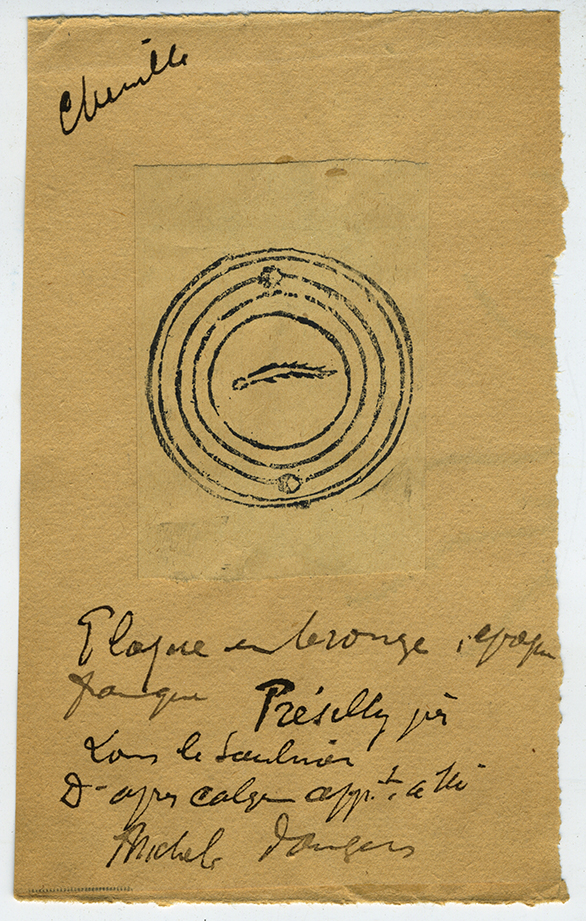 Chenille
Plaque en bronze, époque
franque Présilly près
Lons le Saulnier
D'après calque appt. à Mr
Michel